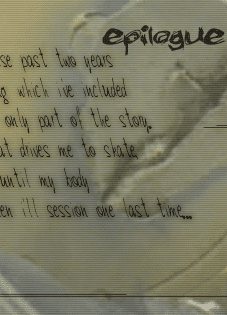 epilogue
se past two years
g which i've included
only part of the story.
at drives me to skate,
until my body
en i'll session one last time...